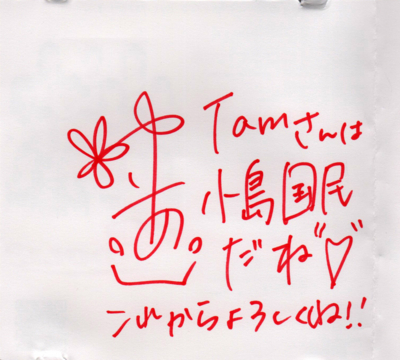 Tamさんは
小島国民
だね♡
これからよろしくね!!